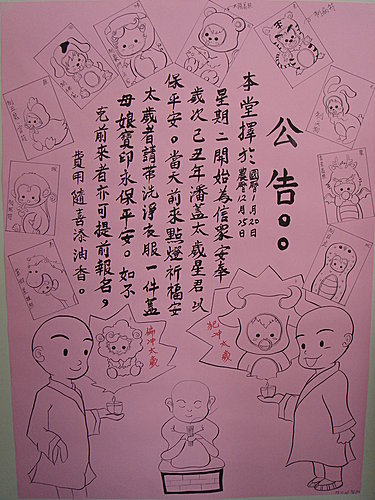 公告。。
本堂擇於
國曆1月20日
農曆12月25日
星期二開始為信眾安奉
歲次己丑年潘蓋太歲星君以
保平安。當天前來點燈祈福安
太歲者請帶洗淨衣服一件蓋
母娘寶印永保平安。如不
克前來者亦可提前報名，
費用隨喜添油香。
犯沖太歲
偏沖太歲